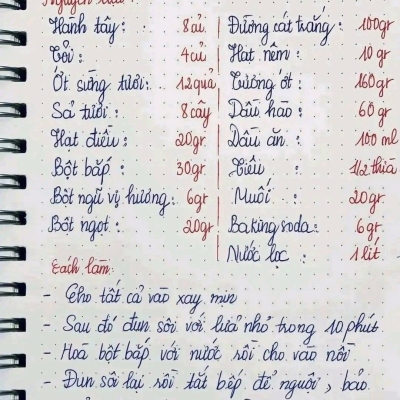 Nguyên liệu:
Hành tây: 8 củ Đường cát trắng: 100gr
Tỏi: 4 củ Hạt nêm: 10 gr
Ớt sừng tươi: 12 quả Tương ớt: 160gr
Sả tươi: 8 cây Dầu hào: 60 gr
Hạt điều: 20gr Dầu ăn: 100 ml
Bột bắp: 30gr Tiêu: 1/2 thìa
Bột ngũ vị hương: 6gr Muối: 20gr
Bột ngọt: 20gr Baking soda: 6gr
Nước lọc: 1 lít
Cách làm:
- Cho tất cả vào xay mịn
- Sau đó đun sôi với lửa nhỏ trong 10 phút
- Hoà bột bắp với nước rồi cho vào nồi
- Đun sôi lại rồi tắt bếp để nguội, bảo